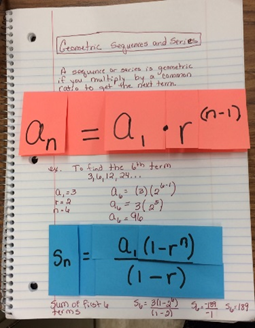 Geometric Sequences and Series
A sequence or series is geometric
if you multiply by a "common
ratio to get the next term
aₙ = a₁ · r⁽ⁿ⁻¹⁾
ex. To find the 6th term
3, 6, 12, 24...
a₁ = 3 a₆ = (3)(2⁶⁻¹)
r = 2 a₆ = 3(2⁵)
n = 6 a₆ = 96
Sₙ = a₁(1-rⁿ) / (1-r)
Sum of first 6 terms S₆ = 3(1-2⁶) / (1-2) S₆ = -189 / -1 S₆ = 189